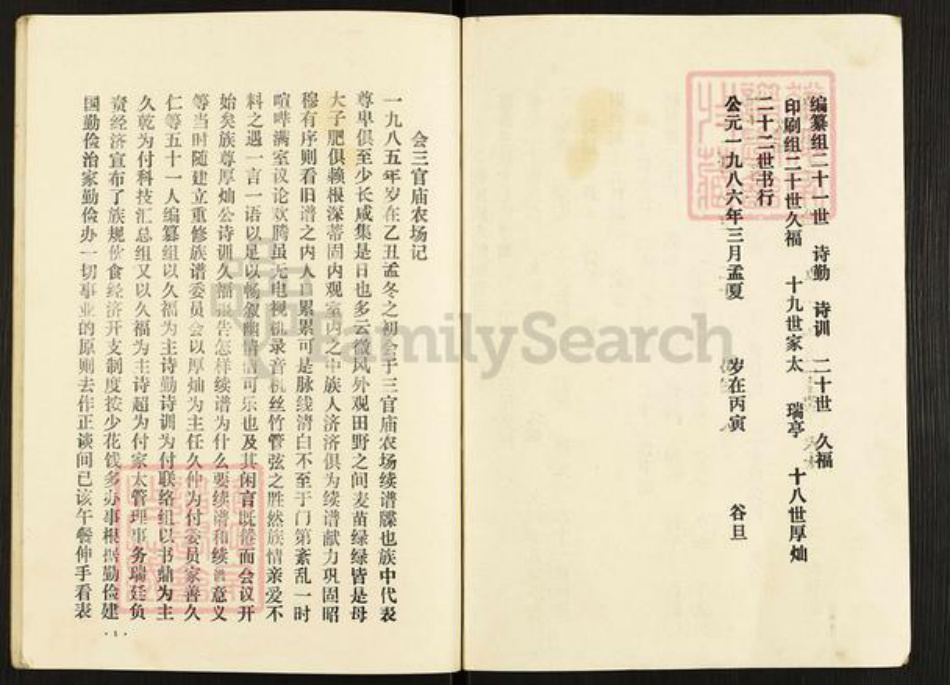 编纂组二十一世 诗勤 诗训 二十世 久福
印刷组二十世久福 十九世家太 瑞亭 十八世厚灿
二十二世书行
公元一九八六年三月孟夏 岁在丙寅 谷旦
会三官庙农场记
一九八五年岁在乙丑孟冬之初会于三官庙农场续谱牒也族中代表
尊卑俱至少长咸集是日也多云微风外观田野之间麦苗绿绿皆是母
大子肥俱赖根深蒂固内观室内之中族人济济俱为续谱献力巩固昭
穆有序则看旧谱之内人口累累可是脉线清白不至于门第紊乱一时
喧哗满室议论欢腾虽无电视机录音机丝竹管弦之胜然族情亲爱不
料之遇一言一语以足以畅叙幽情情可乐也及其闲言既倦而会议开
始矣族尊厚灿公诗训久福报告怎样续谱为什么要续谱和续谱意义
等当时随建立重修族谱委员会以厚灿为主任久仲为付委员家善久
仁等五十一人编纂组以久福为主诗勤诗训为付联络组以书鼎为主
久乾为付科技汇总组又以久福为主诗超为付家太管理事务瑞廷负
责经济宣布了族规伙食经济开支制度按少花饯多办事根据勤俭建
国勤俭治家勤俭办一切事业的原则去作正谈间已该午餐伸手看表
·1·
FamilySearch